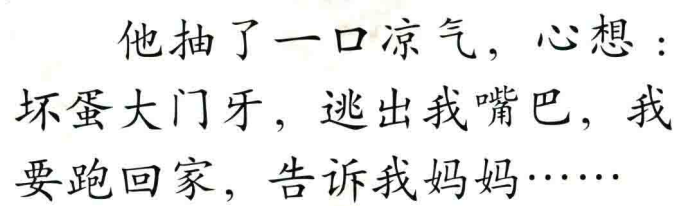 他抽了一口凉气，心想：
坏蛋大门牙，逃出我嘴巴，我
要跑回家，告诉我妈妈……